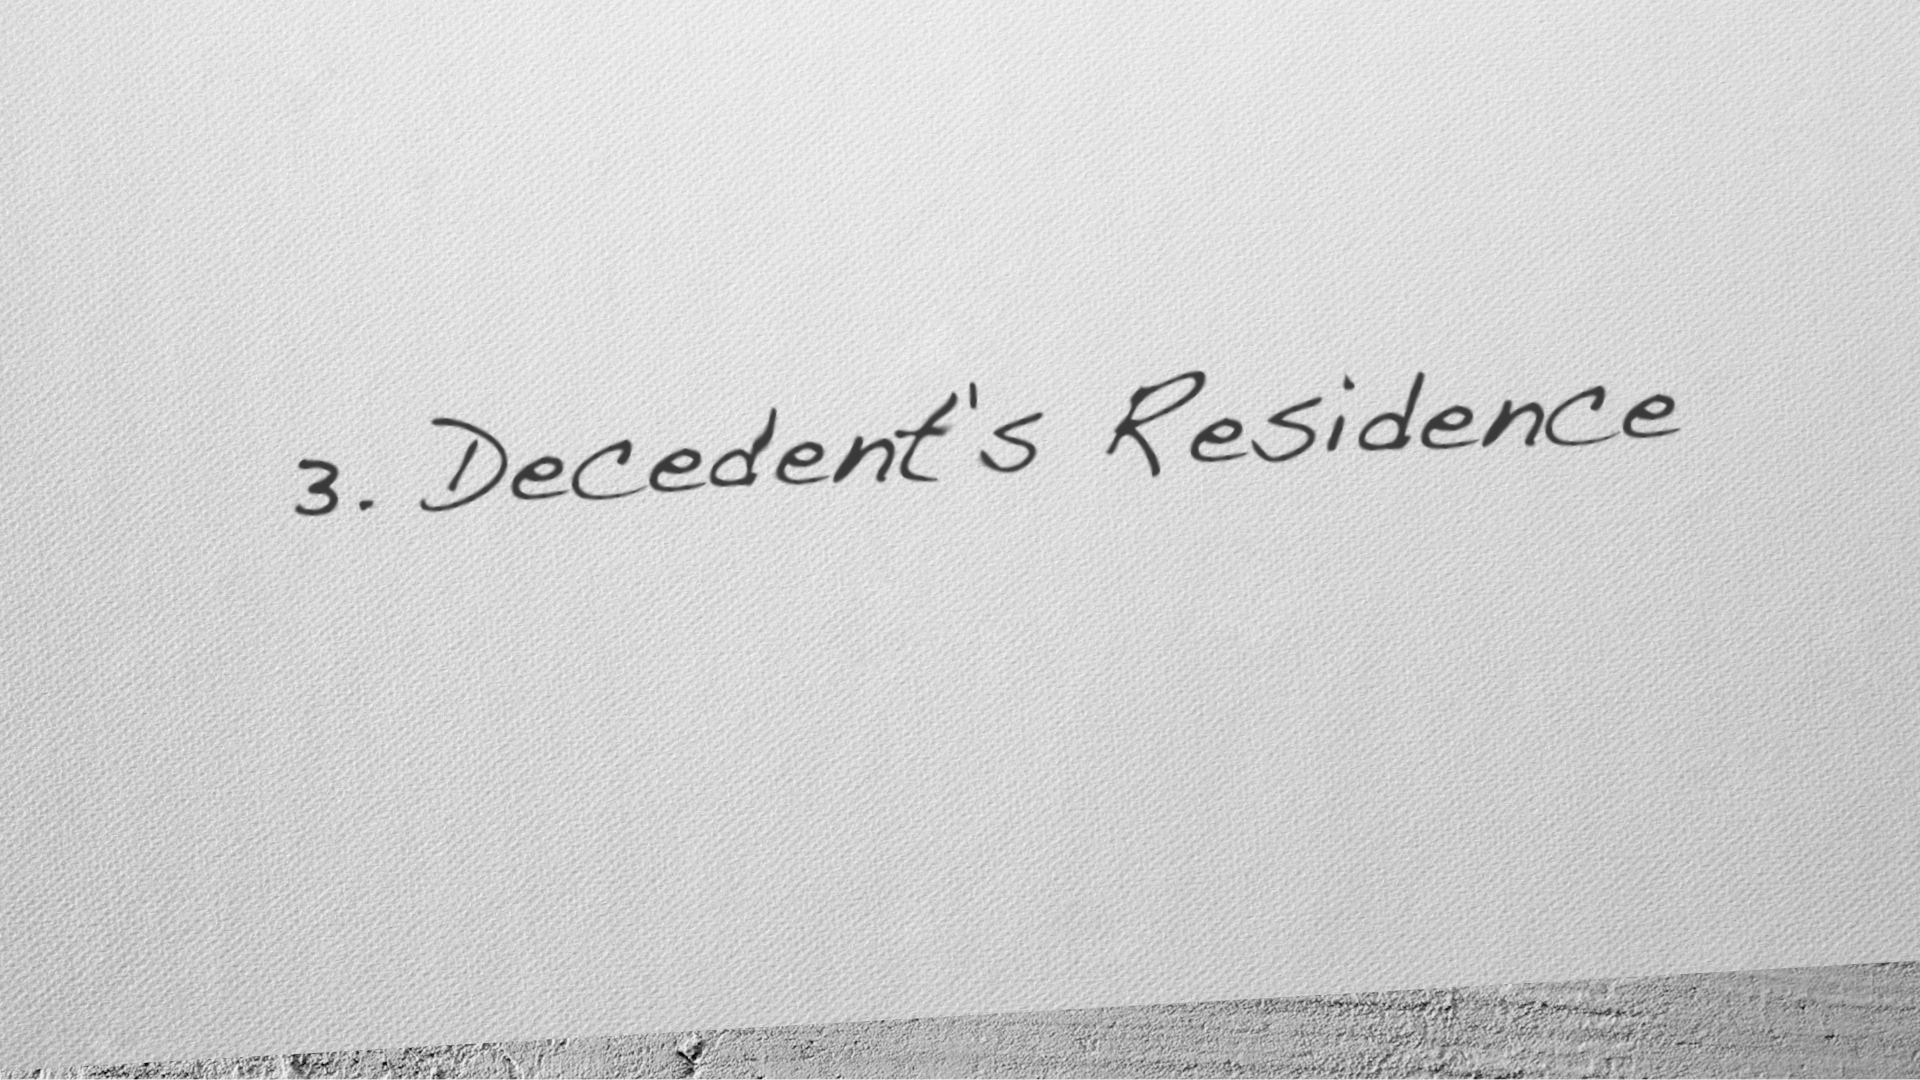 3. Decedent's Residence